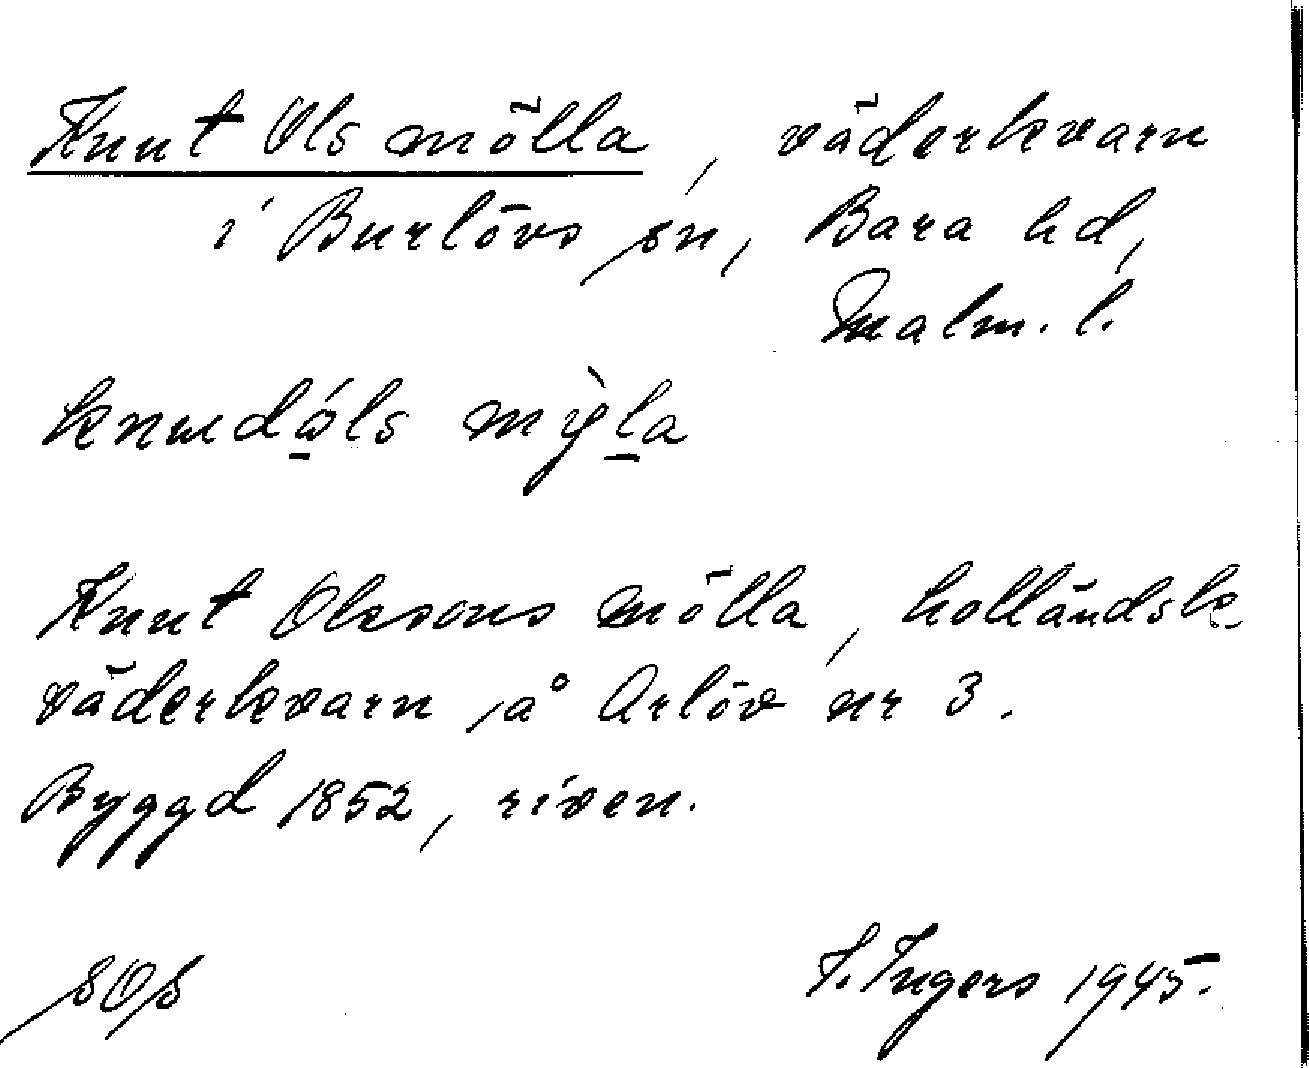 Knut Ols mölla, väderkvarn
i Burlövs sn, Bara hd,
Malm. l.
knudóls mỳla
Knut Olssons mölla, holländsk
väderkvarn på Arlöv nr 3.
Byggd 1852, riven.
SOS
I. Ingers 1945.